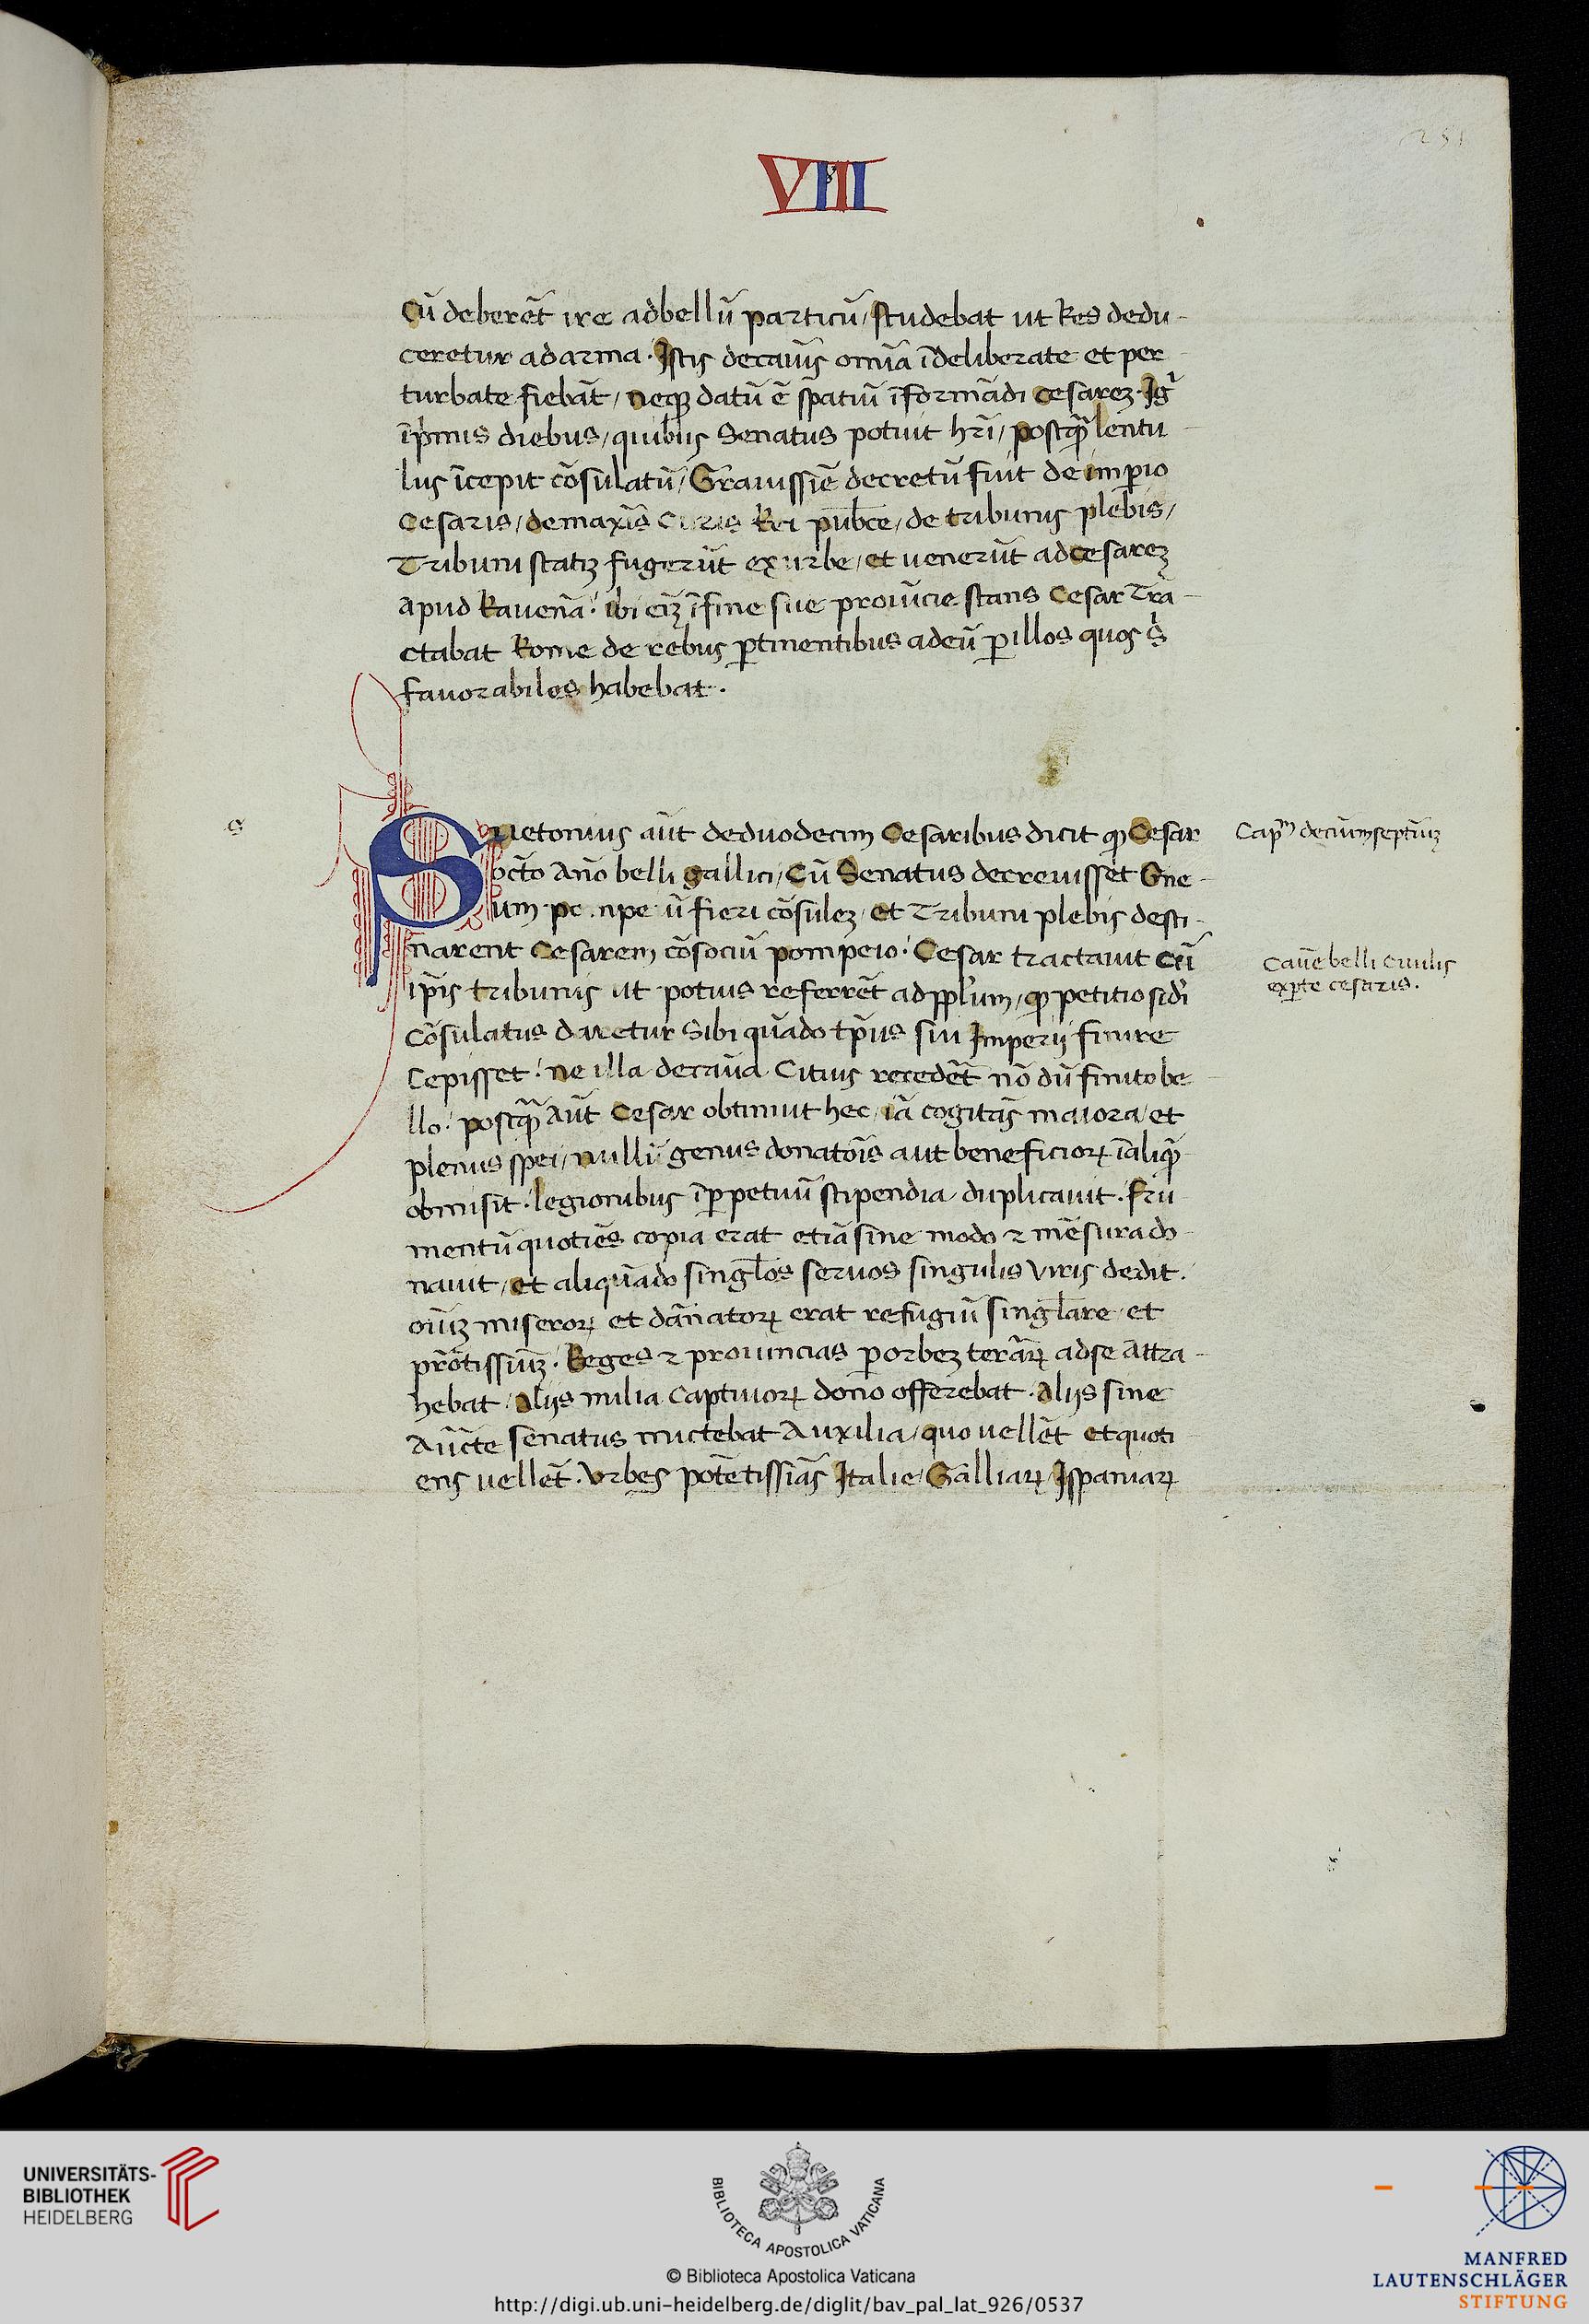 251
VIII
Cū deberēt ire ad bellū particū / studebat ut Res dedu-
ceretur ad arma. Istis de cauis omīa īdeliberate et per
turbate fiebāt / neqȝ datū ē spatiū īformādi cesarez. Igr̄
ī pr̄mis diebus / quibus Senatus potuit hr̄i / postq̄ lentu
lus īcepit cōsulatū / Grauissīe decretū fuit de imp̄io
Cesaris / de maxīs Curis Rei pub̄ce / de tribunis plebis /
Tribuni statiz fugerūt ex urbe / et uenerūt ad cesarez
apud Rauenā. ibi eīz ī fine sue prouīcie stans Cesar Tra-
ctabat Rome de rebus p̄tinentibus ad eū p̄ illos quos s̄
fauorabiles habebat.
Suetonius aūt de duodecim Cesaribus dicit qp Cesar
octo Āno belli gallici / Cū Senatus decreuisset Gne-
um pompeiū fieri cōsulez / et Tribuni plebis desti-
narent Cesarem cōsociū pompeio. Cesar tractauit cū
ip̄is tribunis ut potius referrēt ad pp̄lum / qp petitio sedi
Cōsulatus daretur Sibi quādo tp̄us sui Imperij finire
Cepisset. ne illa de caūa Citius recedēt nō dū finito be
llo. postq̄ Aūt Cesar obtinuit hec / iā cogitās maiora / et
plenus spei / nullū genus donatōis aut beneficioꝝ ī aliq̄
obmisit. legionibus ī p̄petuū stipendia duplicauit. fru
mentū quotiēs copia erat etiā sine modo ⁊ mēsura do
nauit / et aliquādo singl̄os seruos singulis Viris dedit.
oīuz miseroꝝ et dānatoꝝ erat refugiū singl̄are / et
prōtissiuz. Reges ⁊ prouincias p̄ orbez terāꝝ ad se Attra-
hebat / alijs milia captiuoꝝ dono offerebat. alijs sine
Aūcte senatus mictebat Auxilia / quo uellēt et quoti
ens uellēt. Vrbes potētissiās Italie / Galliaꝝ / Ispaniaꝝ
s
Capm̄ decimumseptīuz
Caūe belli ciuilis
ex p̄te cesaris.
UNIVERSITÄTS-
BIBLIOTHEK
HEIDELBERG
BIBLIOTECA APOSTOLICA VATICANA
© Biblioteca Apostolica Vaticana
http://digi.ub.uni-heidelberg.de/diglit/bav_pal_lat_926/0537
MANFRED
LAUTENSCHLÄGER
STIFTUNG